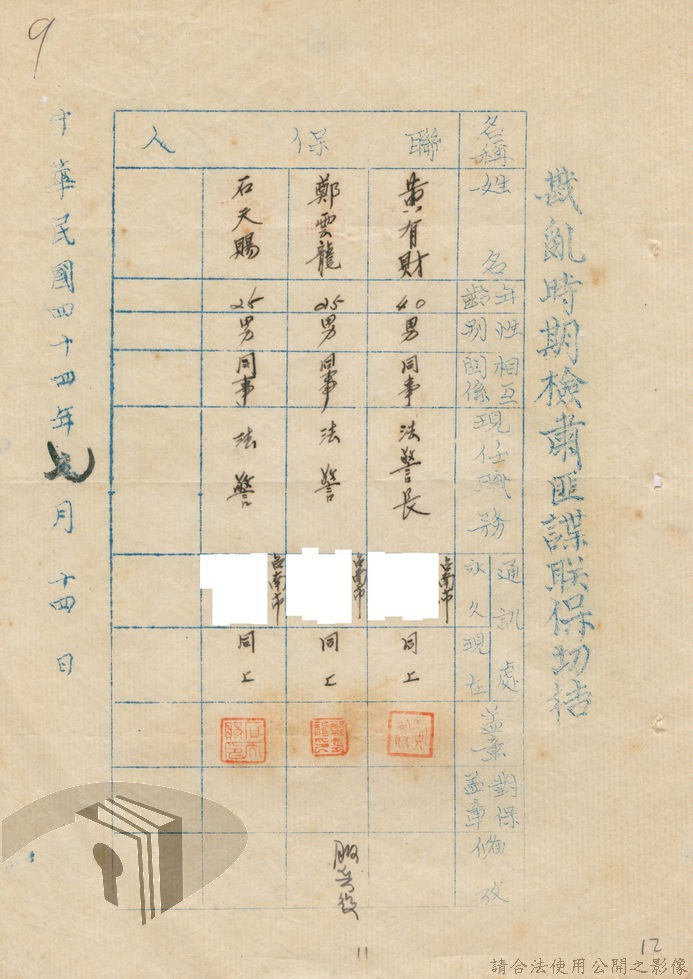 9
戡亂時期檢肅匪諜联保切结
名稱 姓名 年齡 性别 相互関係 現任職務 通訊處 永久 現在 蓋章 對保蓋章 備攷
聯保人
黃有財 40 男 同事 法警長 台南市 同上
鄭雲龍 25 男 同事 法警 台南市 同上 服兵役
石天賜 25 男 同事 法警 台南市 同上
中華民國四十四年七月十四日
11
12
請合法使用公開之影像